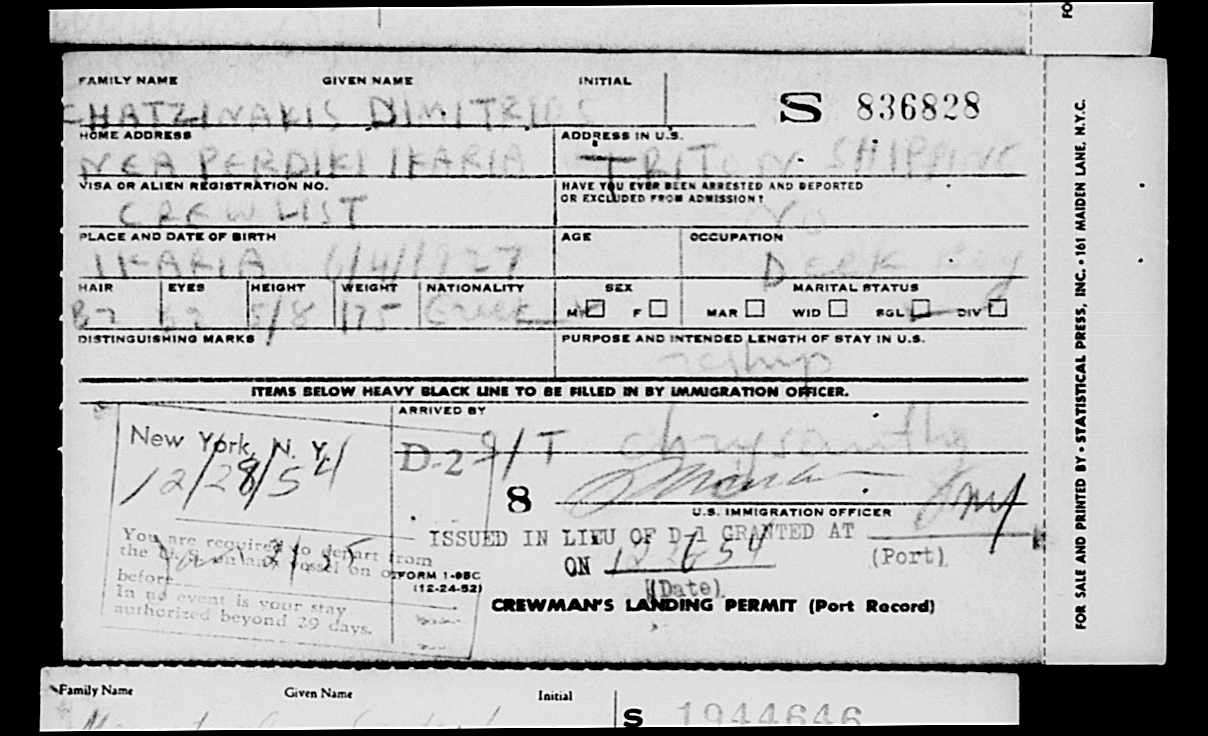 FAMILY NAME GIVEN NAME INITIAL
CHATZINAKIS DIMITRIOS S 836828
HOME ADDRESS ADDRESS IN U.S.
NEA PERDIKI IKARIA TRITON SHIPPING
VISA OR ALIEN REGISTRATION NO. HAVE YOU EVER BEEN ARRESTED AND DEPORTED
OR EXCLUDED FROM ADMISSION?
CREW LIST No
PLACE AND DATE OF BIRTH AGE OCCUPATION
IKARIA 6/4/1927 Deck Boy
HAIR EYES HEIGHT WEIGHT NATIONALITY SEX MARITAL STATUS
Br br 5/8 175 Greek M F MAR WID SGL DIV
DISTINGUISHING MARKS PURPOSE AND INTENDED LENGTH OF STAY IN U.S.
reship
ITEMS BELOW HEAVY BLACK LINE TO BE FILLED IN BY IMMIGRATION OFFICER.
ARRIVED BY
New York, N. Y.
12/28/54
D-2 S/T
8
U.S. IMMIGRATION OFFICER
ISSUED IN LIEU OF D-1 GRANTED AT
(Port)
ON 12 26 54
(Date)
You are required to depart from
the U. S. on any vessel on or
before
In no event is your stay
authorized beyond 29 days.
FORM I-95C
(12-24-52)
CREWMAN'S LANDING PERMIT (Port Record)
FOR SALE AND PRINTED BY • STATISTICAL PRESS, INC. • 161 MAIDEN LANE, N.Y.C.
FO
Family Name Given Name Initial
S 1944646